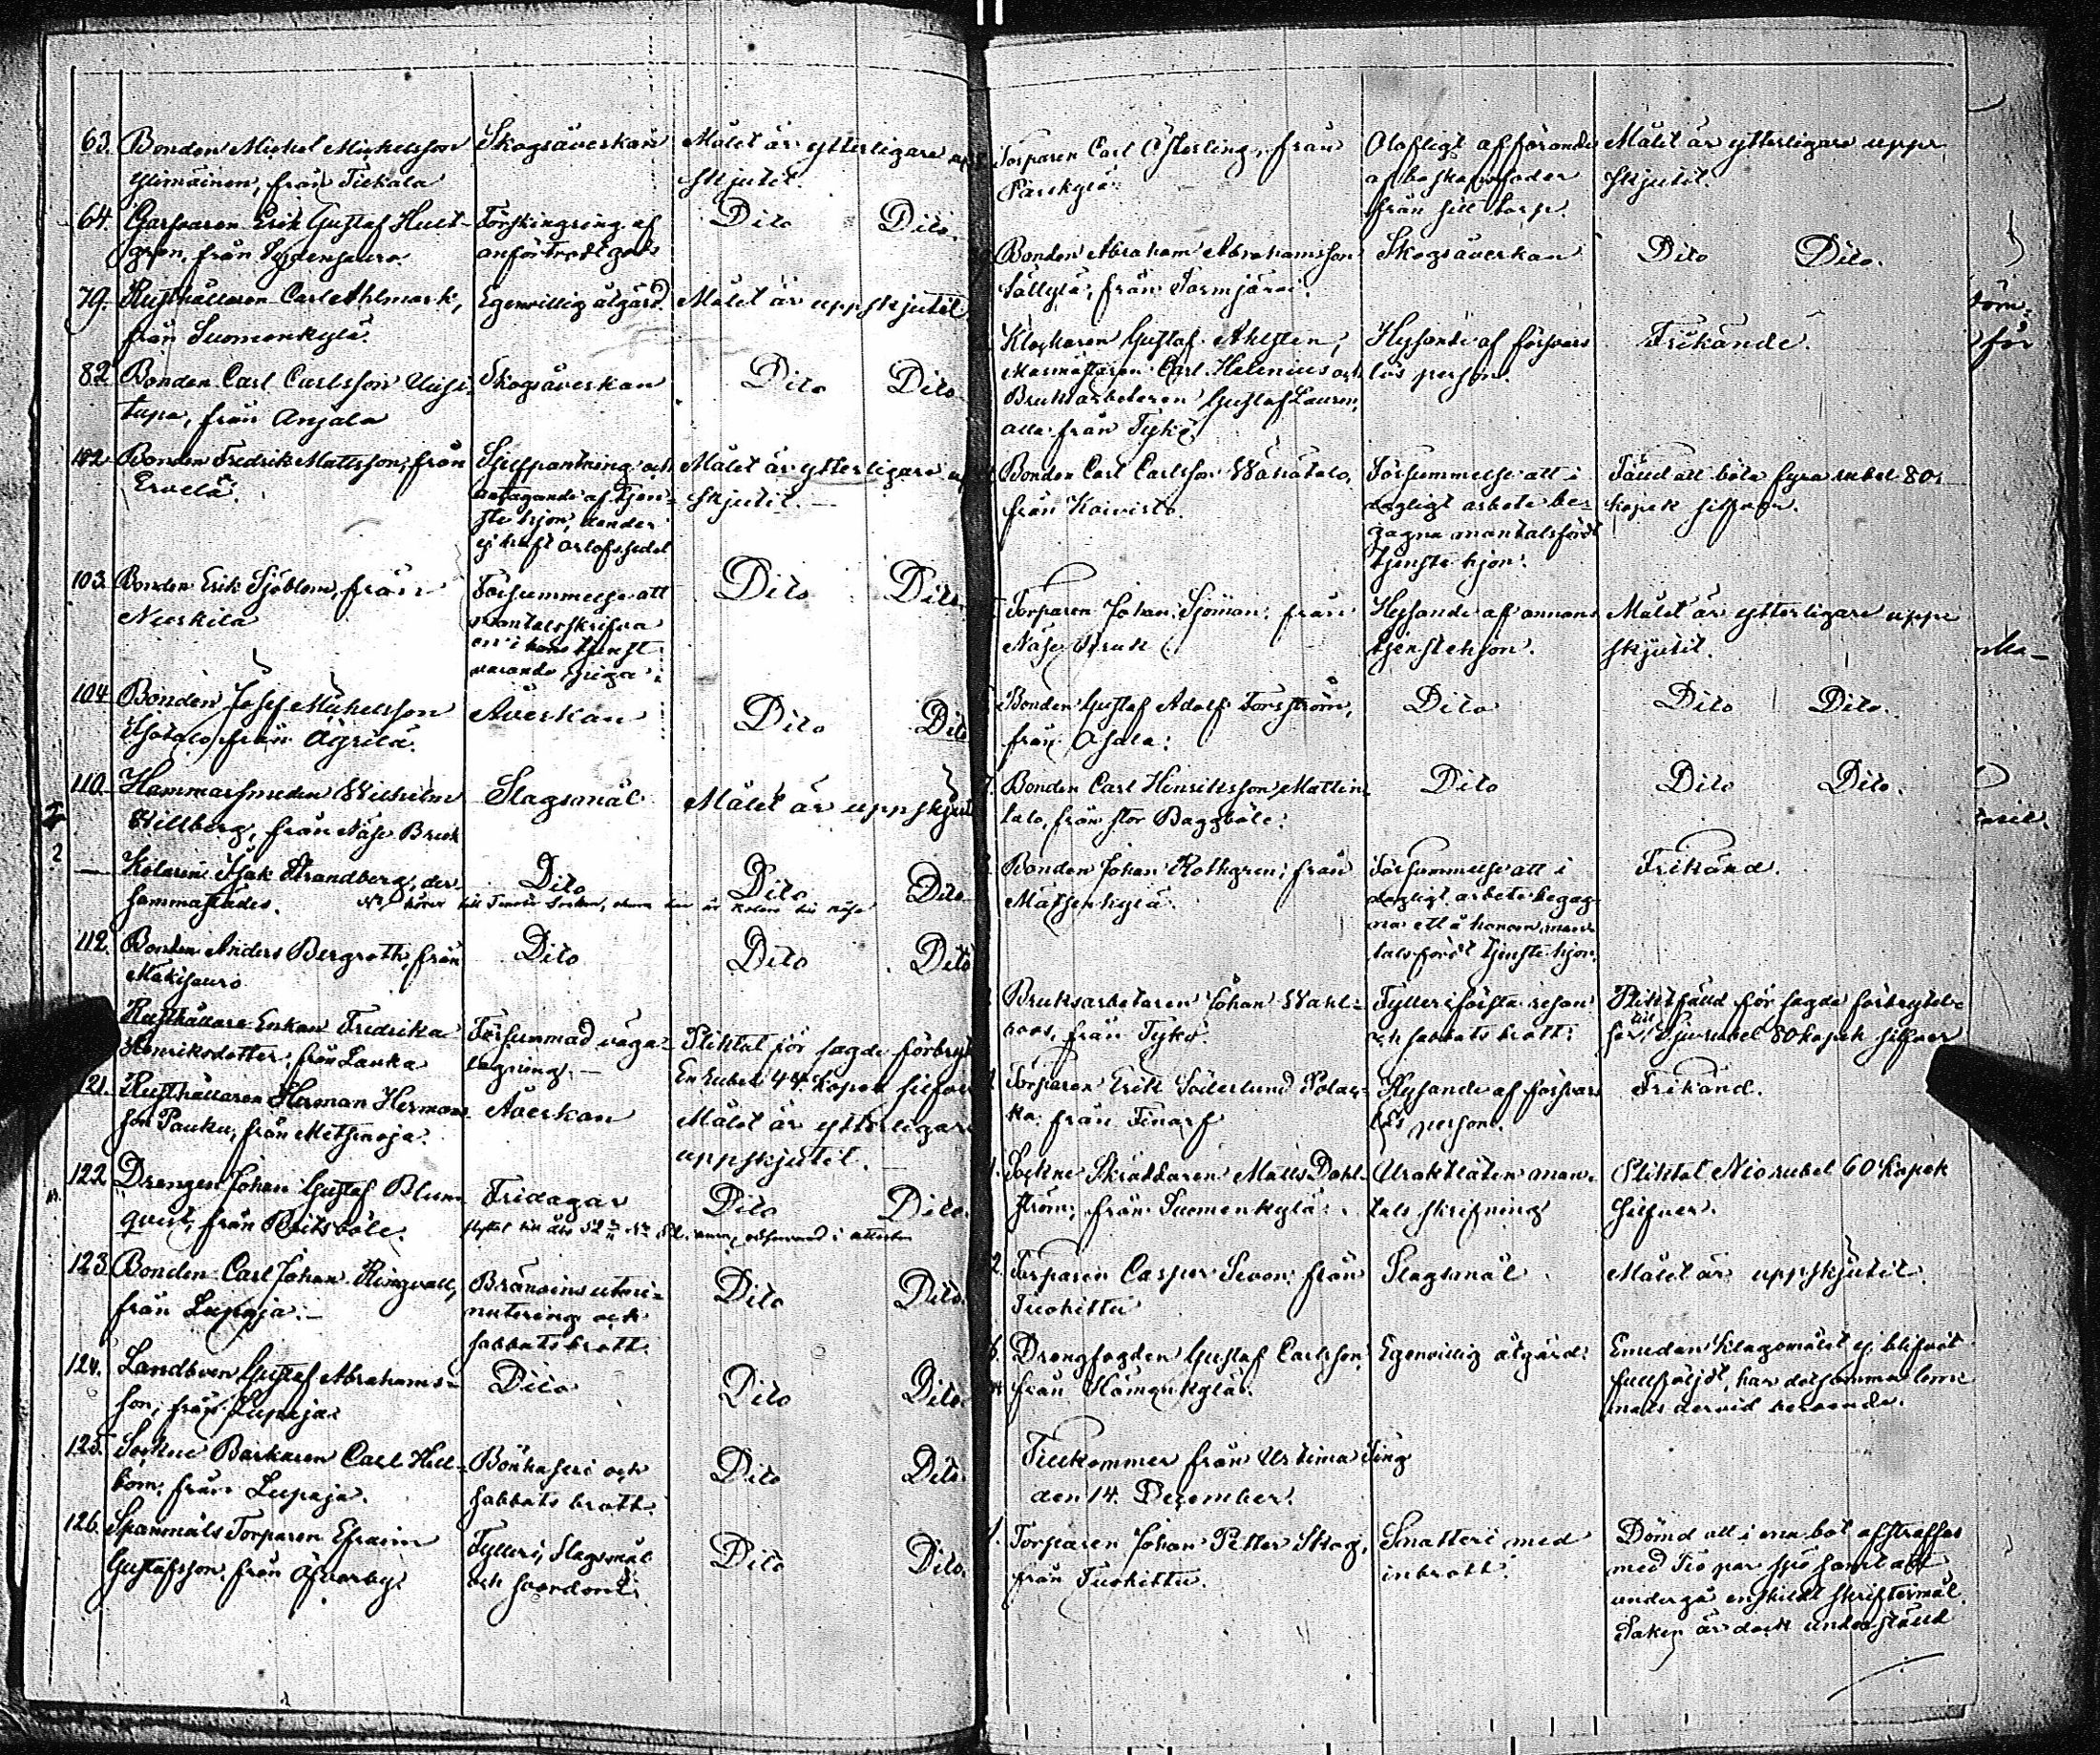 63. Bonden Michel Michelsson
Ylimäinen, från Tiikala
Skogsåverkan
Målet är ytterligare upp
skjutit.
64. Garfvaren Erik Gustaf Hult-
gren, från
Förskingring af
anförtrodt gods
Dito Dito.
79. Rusthållaren Carl Ahlmark,
från Suomenkylä.
Egenvillig åtgärd.
Målet är uppskjutit
82 Bonden Carl Carlsson Uusi-
tupa, från Anjala
Skogsåverkan
Dito Dito
102 Bonden Fredrik Mattsson, från
Ervelä.
Sjelfpantning och
antagande af tjen-
ste hjon, den der
ej haft orlofssedel
Målet är ytterligare upp
skjutit.
103. Bonden Erik Sjöblom, från
Försummelse att
mantalsskrifva
en i hans tjenst
varande piga.
Dito Dito
104 Bonden Josef Michelsson
Isotalo från Ägrilä.
Åverkan
Dito Dito
110. Hammarsmeden Wilhelm
Willberg, från Näse Bruk
Slagsmål
Målet är uppskjut
— Kolaren Isak Strandberg, der-
sammastädes.
Dito
Dito Dito
112. Bonden Anders Bergroth, från
Mäkisauro
Dito
Dito Dito
Rusthållare Enkan Fredrika
Henriksdotter, från Lauka
Försummad väga-
lagning. —
Pliktat för sagde förbryt
En rubel 44 kopek silfver
121. Rusthållaren Herman Herman-
son Pauku, från Metsänoja.
Åverkan
Målet är ytterligare
uppskjutit.
122 Drengen Johan Gustaf Blom-
qvist, från Breitsböle.
Fridagar
Dito Dito.
123. Bonden Carl Johan Ringvall,
från Lupaja. —
Bränvins utmi-
nutering och
sabbats brott.
Dito Dito.
124. Landbonden Gustaf Abrahams-
son, från Lupaja
Dito
Dito Dito
125. Sockne Barkaren Carl Hell-
bom, från Lupaja.
Bönhaseri och
sabbats brott.
Dito Dito.
126. Spanmåls Torparen Efraim
Gustafsson från Öfverby.
Fylleri, slagsmål
och svordom.
Dito Dito.
Torparen Carl Österling, från
Pärskylä.
Olofligt afförande
af boskapsfoder
från sitt torp.
Målet är ytterligare upp-
skjutit.
Bonden Abraham Abrahamsson
Sällylä, från Sormjärvi.
Skogsåverkan
Dito Dito.
Klockaren Gustaf Ahlsten,
Masmästaren Carl Helenius och
Bruksarbetaren Gustaf Lauren,
alla från Tykö
Hysande af försvars
lös person.
Frikände.
Bonden Carl Carlsson Wäsätalo,
från Koivisto.
Försummelse att i
dagligt arbete be-
gagna mantalsfördt
tjenste hjon.
Fäld att böta fyra rubel 80
kopek silfver.
Torparen Johan Sjöman från
Näse Bruk
Hysande af annans
tjenstehjon.
Målet är ytterligare upp-
skjutit.
Bonden Gustaf Adolf Forsström,
från Asala.
Dito
Dito Dito.
Bonden Carl Henriksson Mattin-
talo, från stor Baggböle.
Dito
Dito Dito.
Bonden Johan Rothgren, från
Matsenkylä.
Försummelse att i
dagligt arbete begag-
na ett å honom man-
talsfördt tjenste hjon.
Frikänd.
Bruksarbetaren Johan Wahl-
roos, från Tykö.
Fylleri första resan
och sabbats brott.
Pliktfälld för sagde förbrytel-
ser till Sju rubel 80 kopek silfver
Torparen Erik Söderlund
från Finarf
Hysande af försvars
lös person.
Frikänd.
Sockne Skräddaren Matts Dahl-
ström, från Suomenkylä.
Uraktlåten man-
tals skrifning
Pliktat Nio rubel 60 kopek
silfver.
Torparen Casper Sevon från
Tuohittu
Slagsmål
Målet är uppskjutit.
Drengfogden Gustaf Carlsson
från Hämeenkylä.
Egenvillig åtgärd.
Emedan klagomålet ej blifvit
fullföljdt, har detsamma lem-
nats dervid beroende.
Tillkommer från Urtima Ting
den 14. December.
Torparen Johan Petter Skog,
från Tuohittu.
Snatteri med
inbrott.
Dömd att i ena bot afstraffas
med Tio par spö samt att
undergå enskildt skriftermål.
Saken är dock underställd